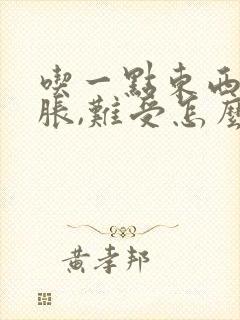 喫一點東西
脹,難受怎麼
黃孝邦